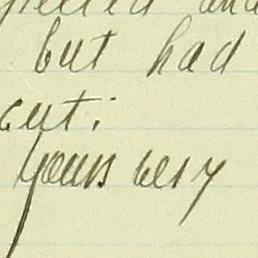 and
but had
cut:
yours very